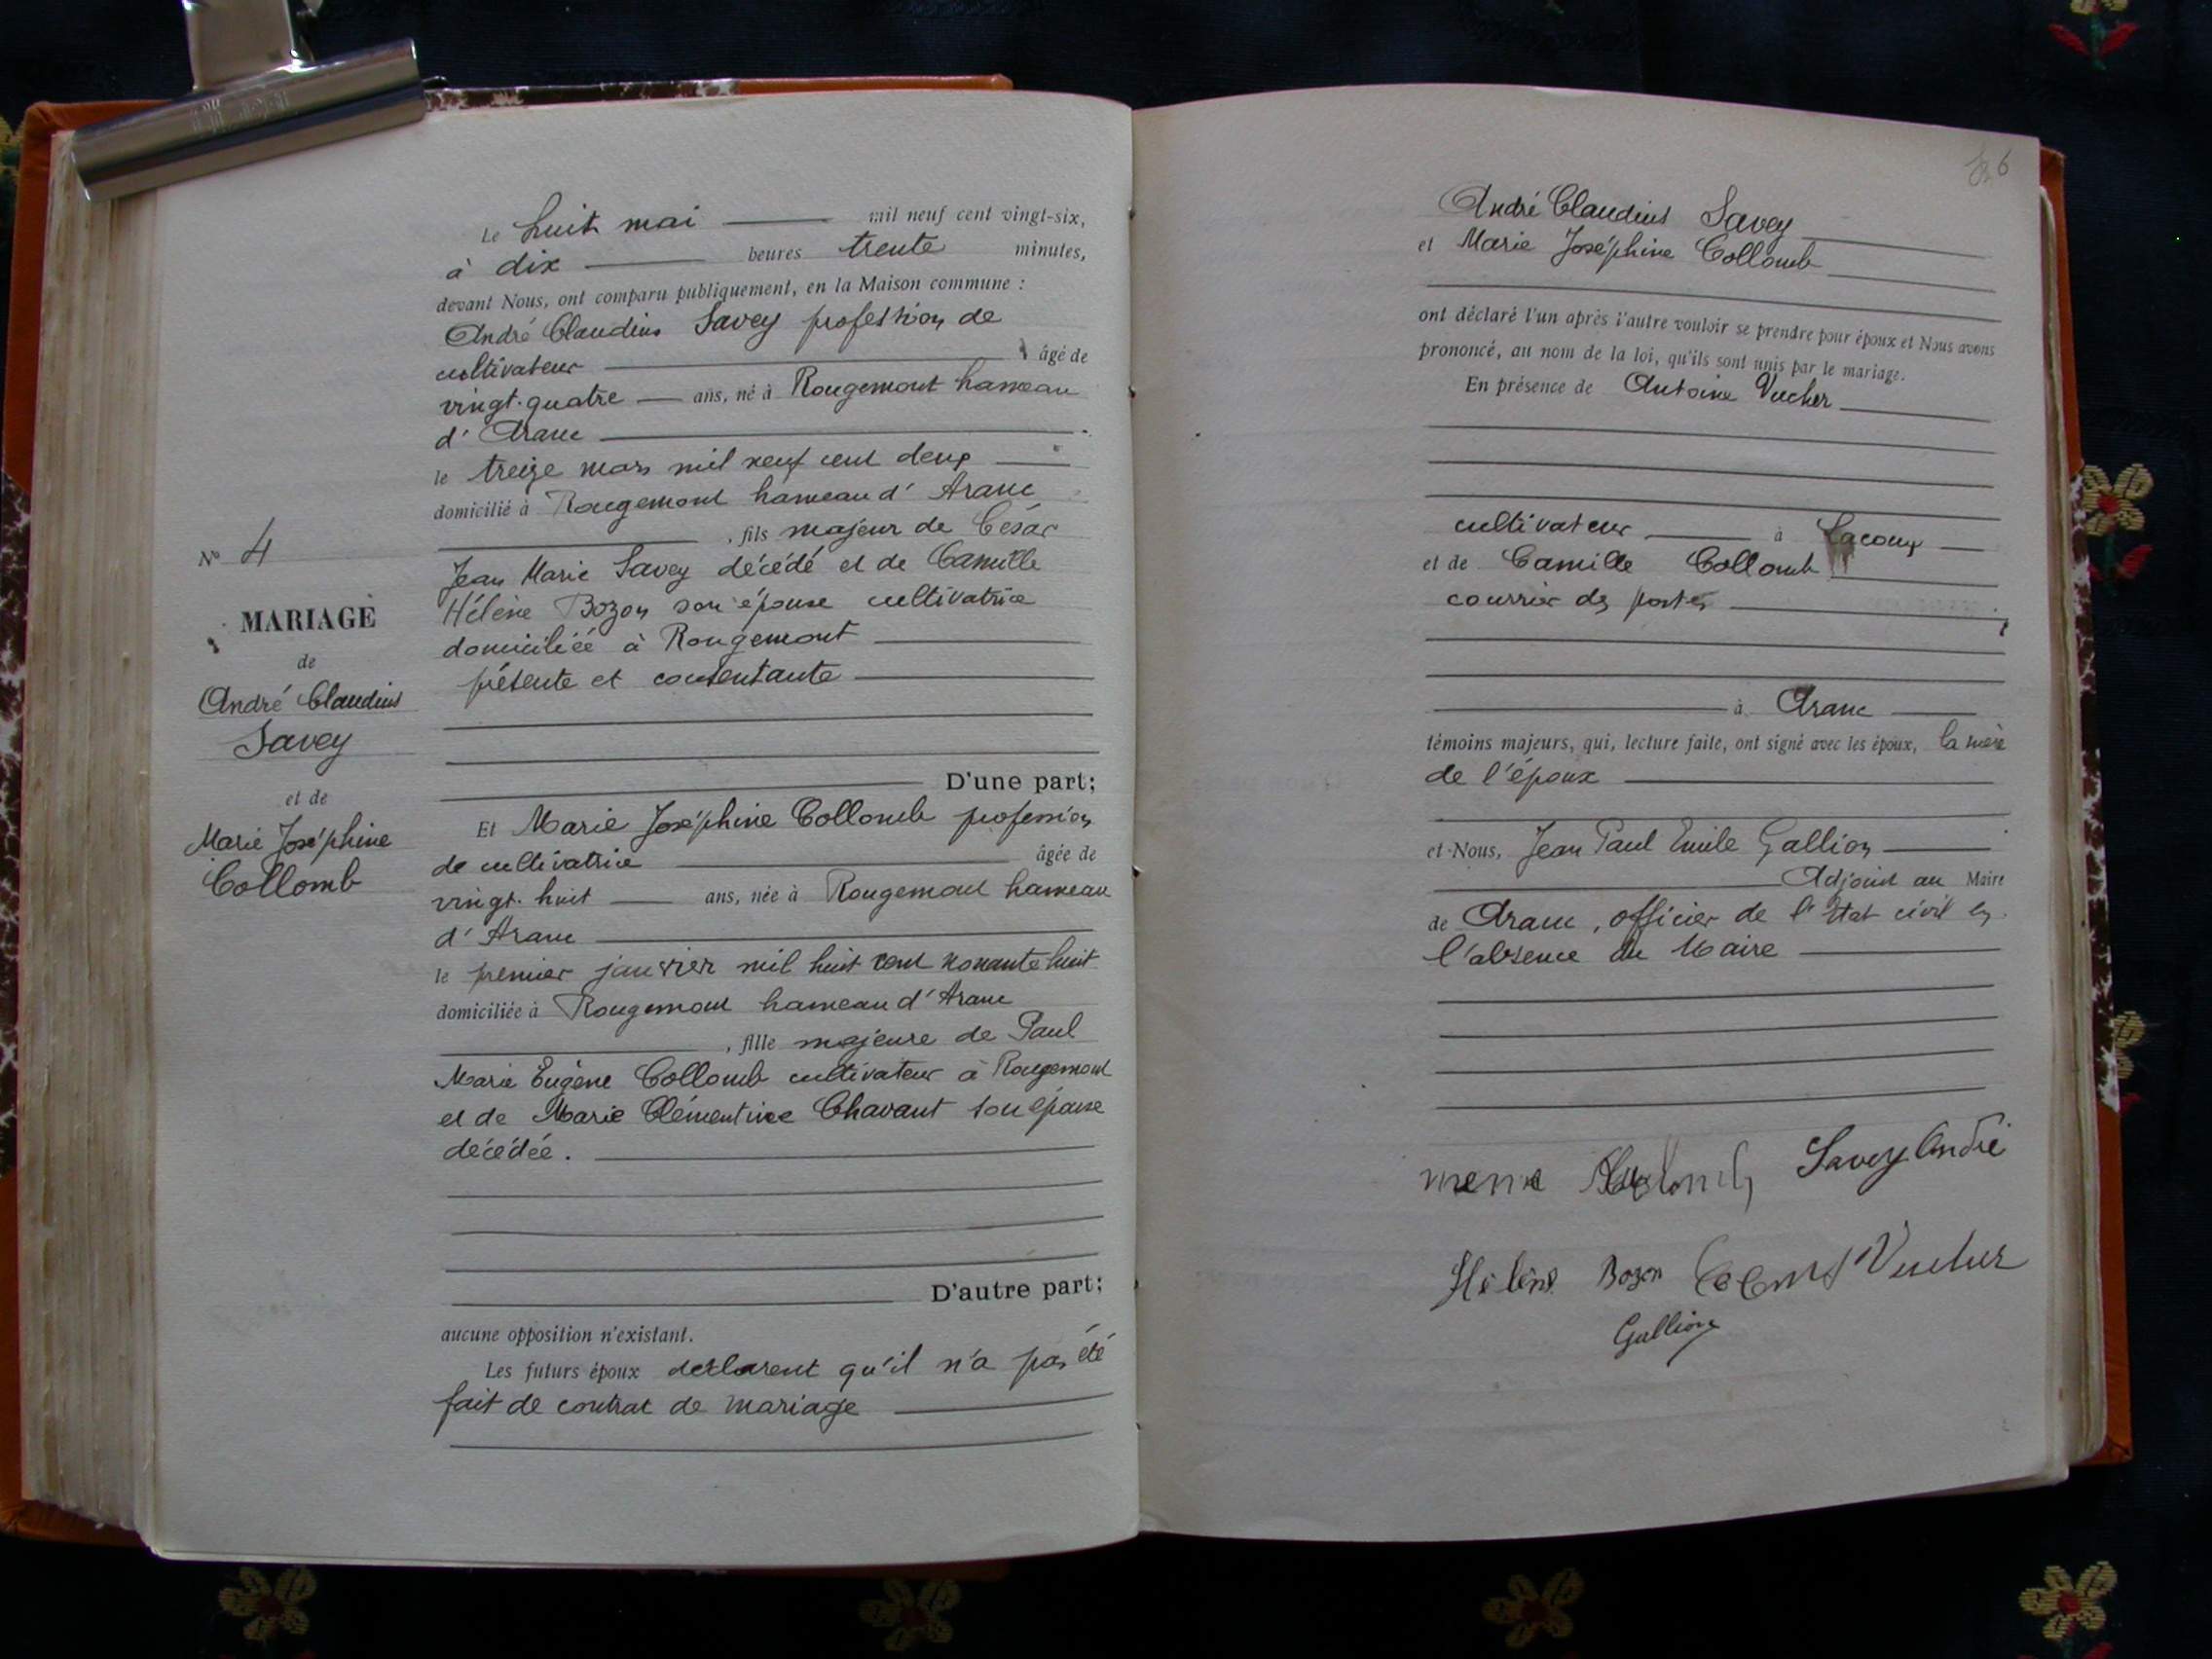 Le huit mai mil neuf cent vingt-six,
à dix heures trente minutes,
devant Nous, ont comparu publiquement, en la Maison commune :
André Claudius Savey profession de
cultivateur âgé de
vingt-quatre ans, né à Rougemont hameau
d'Aranc
le treize mars mil neuf cent deux
domicilié à Rougemont hameau d'Aranc
, fils majeur de César
Jean Marie Savey décédé et de Camille
Hélène Bozon son épouse cultivatrice
domiciliée à Rougemont
présente et consentante
D'une part;
Et Marie Joséphine Collomb profession
de cultivatrice âgée de
vingt-huit ans, née à Rougemont hameau
d'Aranc
le premier janvier mil huit cent nonante huit
domiciliée à Rougemont hameau d'Aranc
, fille majeure de Paul
Marie Eugène Collomb cultivateur à Rougemont
et de Marie Clémentine Chavant son épouse
décédée.
D'autre part;
aucune opposition n'existant.
Les futurs époux déclarent qu'il n'a pas été
fait de contrat de mariage
N° 4
MARIAGE
de
André Claudius
Savey
et de
Marie Joséphine
Collomb
André Claudius Savey
et Marie Joséphine Collomb
ont déclaré l'un après l'autre vouloir se prendre pour époux et Nous avons
prononcé, au nom de la loi, qu'ils sont unis par le mariage.
En présence de Antoine Vucher
cultivateur à Lacoux
et de Camille Collomb
courrier des postes
à Aranc
témoins majeurs, qui, lecture faite, ont signé avec les époux, la mère
de l'époux
et Nous, Jean Paul Emile Gallion
Adjoint au Maire
de Aranc, officier de l'Etat civil en
l'absence du Maire
Savey André
Hélène Bozon Vucher
Gallion